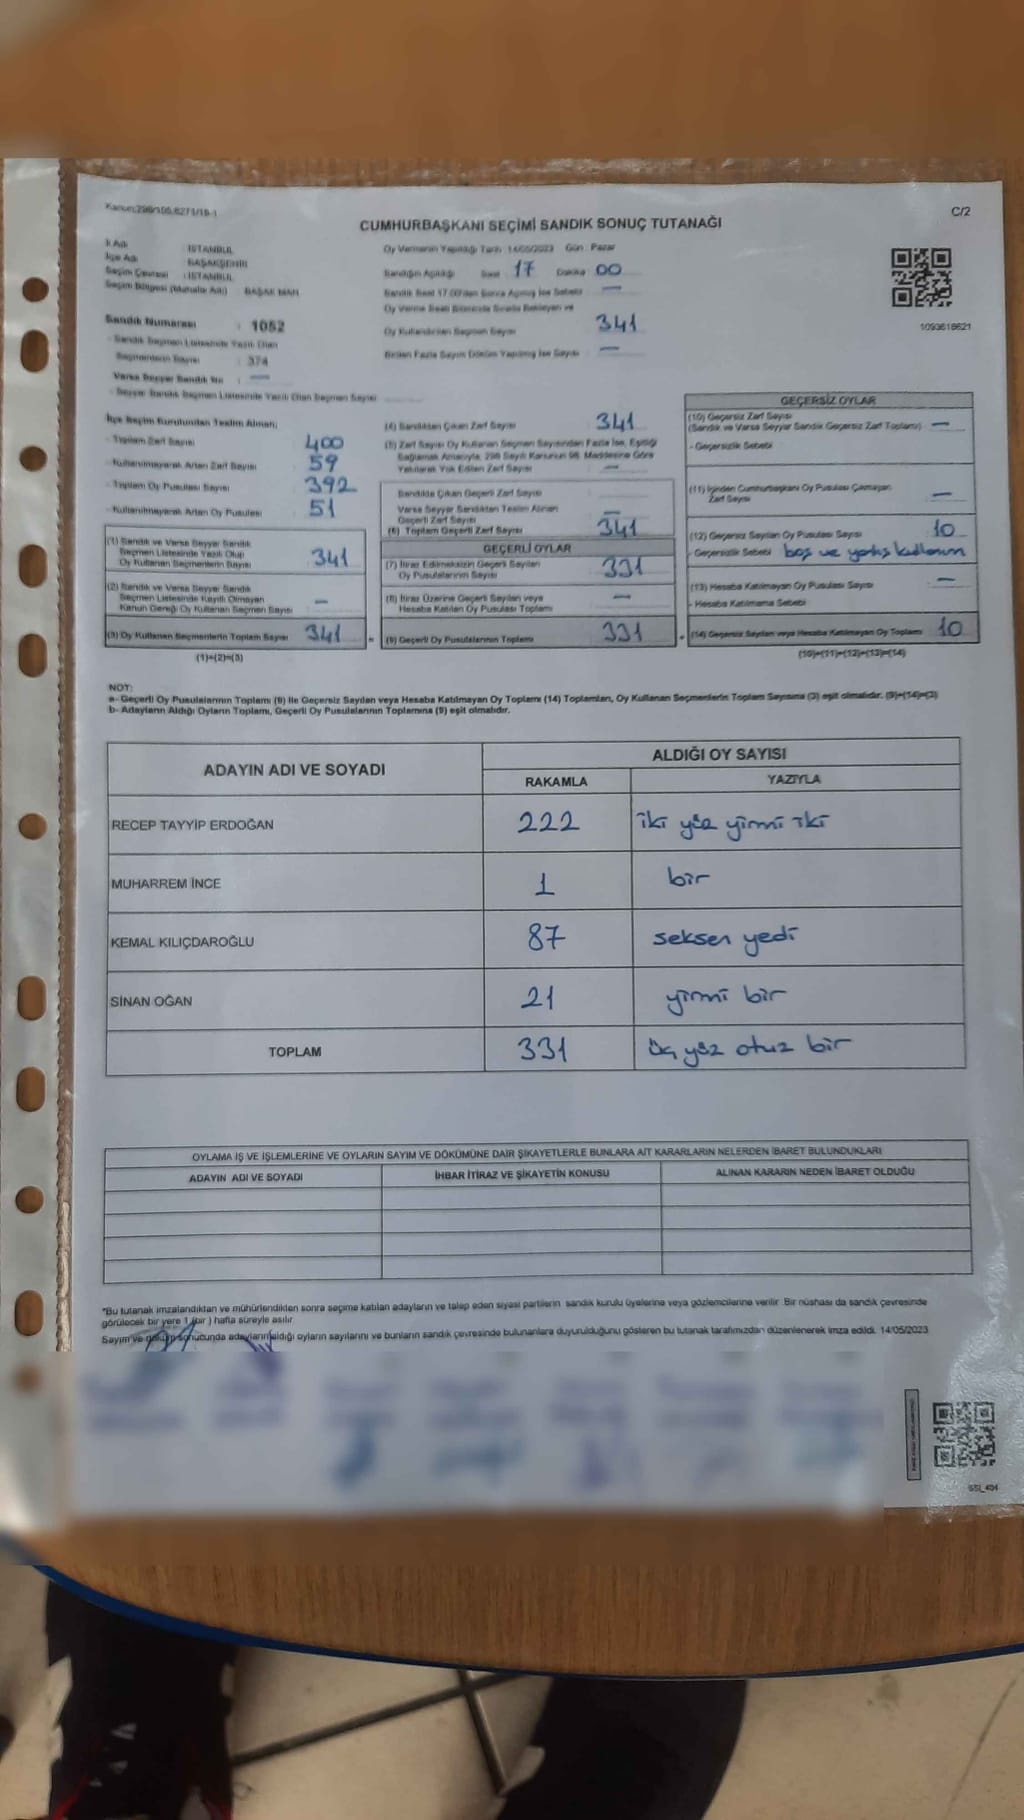 Kanun:298/105,6271/18-1
C/2
CUMHURBAŞKANI SEÇİMİ SANDIK SONUÇ TUTANAĞI
İl Adı : İSTANBUL
İlçe Adı : BAŞAKŞEHİR
Seçim Çevresi : İSTANBUL
Seçim Bölgesi (Muhtarlık Adı) : BAŞAK MAH
Sandık Numarası : 1052
- Sandık Seçmen Listesinde Yazılı Olan
Seçmenlerin Sayısı : 374
Varsa Seyyar Sandık No : —
- Seyyar Sandık Seçmen Listesinde Yazılı Olan Seçmen Sayısı
Oy Vermenin Yapıldığı Tarih : 14/05/2023 Gün : Pazar
Sandığın Açıldığı Saat 17 Dakika 00
Sandık Saat 17.00'den Sonra Açılmış İse Sebebi —
Oy Verme Saati Bitiminde Sırada Bekleyen ve
Oy Kullandırılan Seçmen Sayısı 341
Birden Fazla Sayım Döküm Yapılmış İse Sayısı —
1093618621
İlçe Seçim Kurulundan Teslim Alınan;
- Toplam Zarf Sayısı 400
- Kullanılmayarak Artan Zarf Sayısı 59
- Toplam Oy Pusulası Sayısı 392
- Kullanılmayarak Artan Oy Pusulası 51
(1) Sandık ve Varsa Seyyar Sandık
Seçmen Listesinde Yazılı Olup
Oy Kullanan Seçmenlerin Sayısı 341
(2) Sandık ve Varsa Seyyar Sandık
Seçmen Listesinde Kayıtlı Olmayan
Kanun Gereği Oy Kullanan Seçmen Sayısı —
(3) Oy Kullanan Seçmenlerin Toplam Sayısı 341
(1)+(2)=(3)
(4) Sandıktan Çıkan Zarf Sayısı 341
(5) Zarf Sayısı Oy Kullanan Seçmen Sayısından Fazla İse, Eşitliği
Sağlamak Amacıyla, 298 Sayılı Kanunun 98. Maddesine Göre
Yakılarak Yok Edilen Zarf Sayısı —
Sandıkta Çıkan Geçerli Zarf Sayısı —
Varsa Seyyar Sandıktan Teslim Alınan
Geçerli Zarf Sayısı
(6) Toplam Geçerli Zarf Sayısı 341
GEÇERLİ OYLAR
(7) İtiraz Edilmeksizin Geçerli Sayılan
Oy Pusulalarının Sayısı 331
(8) İtiraz Üzerine Geçerli Sayılan veya
Hesaba Katılan Oy Pusulası Toplamı —
(9) Geçerli Oy Pusulalarının Toplamı 331
GEÇERSİZ OYLAR
(10) Geçersiz Zarf Sayısı
(Sandık ve Varsa Seyyar Sandık Geçersiz Zarf Toplamı) —
- Geçersizlik Sebebi
(11) İçinden Cumhurbaşkanı Oy Pusulası Çıkmayan
Zarf Sayısı —
(12) Geçersiz Sayılan Oy Pusulası Sayısı 10
- Geçersizlik Sebebi boş ve yanlış kullanım
(13) Hesaba Katılmayan Oy Pusulası Sayısı —
- Hesaba Katılmama Sebebi
(14) Geçersiz Sayılan veya Hesaba Katılmayan Oy Toplamı 10
(10)+(11)+(12)+(13)=(14)
NOT:
a- Geçerli Oy Pusulalarının Toplamı (9) ile Geçersiz Sayılan veya Hesaba Katılmayan Oy Toplamı (14) Toplamları, Oy Kullanan Seçmenlerin Toplam Sayısına (3) eşit olmalıdır. (9)+(14)=(3)
b- Adayların Aldığı Oyların Toplamı, Geçerli Oy Pusulalarının Toplamına (9) eşit olmalıdır.
ADAYIN ADI VE SOYADI ALDIĞI OY SAYISI
RAKAMLA YAZIYLA
RECEP TAYYİP ERDOĞAN 222 iki yüz yirmi iki
MUHARREM İNCE 1 bir
KEMAL KILIÇDAROĞLU 87 seksen yedi
SİNAN OĞAN 21 yirmi bir
TOPLAM 331 üç yüz otuz bir
OYLAMA İŞ VE İŞLEMLERİNE VE OYLARIN SAYIM VE DÖKÜMÜNE DAİR ŞİKAYETLERLE BUNLARA AİT KARARLARIN NELERDEN İBARET BULUNDUKLARI
ADAYIN ADI VE SOYADI İHBAR İTİRAZ VE ŞİKAYETİN KONUSU ALINAN KARARIN NEDEN İBARET OLDUĞU
*Bu tutanak imzalandıktan ve mühürlendikten sonra seçime katılan adayların ve talep eden siyasi partilerin sandık kurulu üyelerine veya gözlemcilerine verilir. Bir nüshası da sandık çevresinde
görülecek bir yere 1 (bir) hafta süreyle asılır.
Sayım ve döküm sonucunda adayların aldığı oyların sayılarını ve bunların sandık çevresinde bulunanlara duyurulduğunu gösteren bu tutanak tarafımızdan düzenlenerek imza edildi. 14/05/2023
SSİ_404